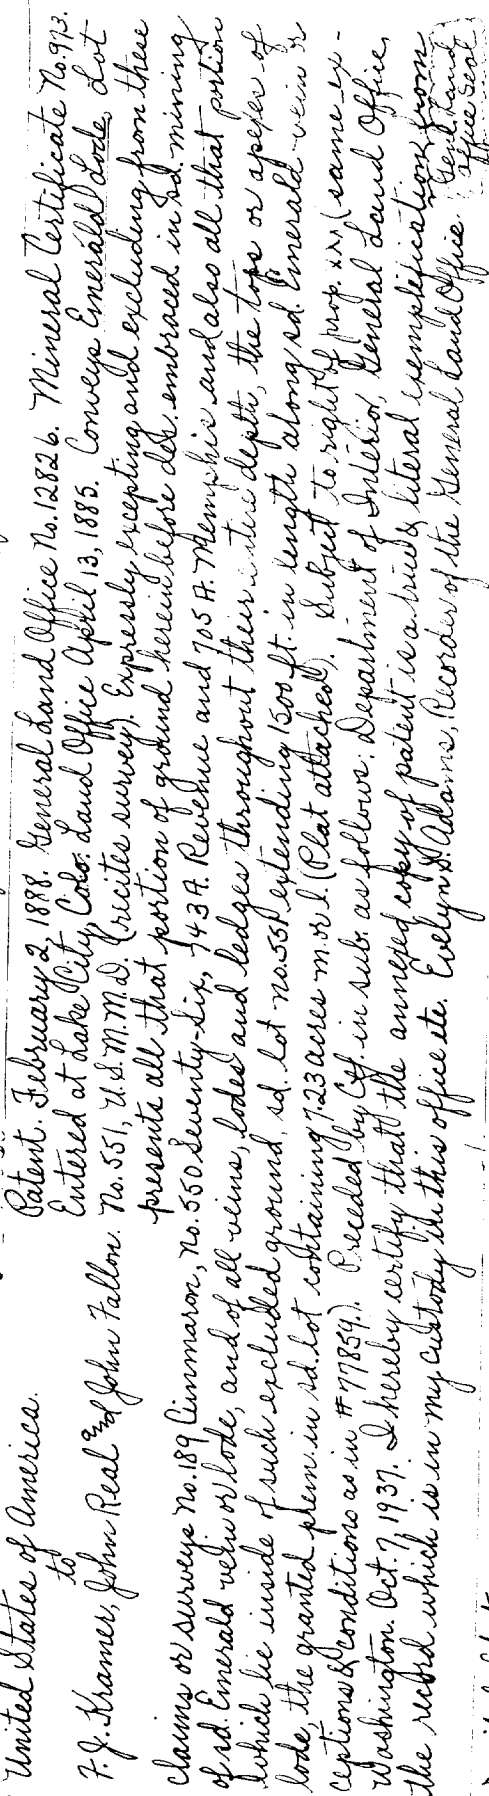 United States of America.
to
F. J. Kramer, John Real and John Fallon.
Patent. February 2, 1888. General Land Office No. 12826. Mineral Certificate No. 973.
Entered at Lake City, Colo. Land Office April 13, 1885. Conveys Emerald Lode, Lot
No. 551, U.S.M.M.D. (recites survey). Expressly excepting and excluding from these
presents all that portion of ground hereinbefore des. embraced in sd. mining
claims or surveys No. 189 Cinmaron, No. 550 Seventy-Six, 743 A. Revenue and 705 A. Memphis and also all that portion
of sd. Emerald vein or lode, and of all veins, lodes and ledges throughout their entire depth, the tops or apexes of
which lie inside of such excluded ground, sd. Lot No. 551 extending 1500 ft. in length along sd. Emerald vein or
lode, the granted prem. in sd. lot containing 7.23 acres m. or l. (Plat attached). Subject to right of prop. xxx (same ex-
ceptions & conditions as in # 77854.) Preceded by Ctf. in sub. as follows: Department of Interior, General Land Office,
Washington. Oct. 7, 1937. I hereby certify that the annexed copy of patent is a true & literal exemplification from
the record which is in my custody in this office etc. Evelyn S. Adams, Recorder of the General Land Office
Genl. Land
Office Seal